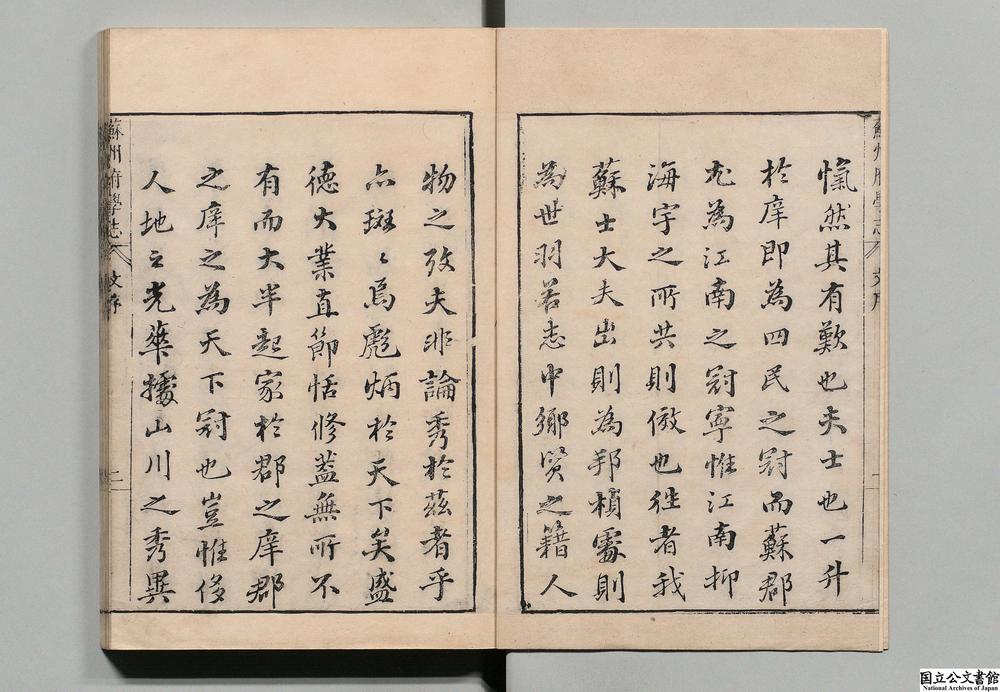 愾然其有歎也夫士也一升
於庠即為四民之冠而蘇郡
尤為江南之冠寧惟江南抑
海宇之所共則倣也徃者我
蘇士大夫出則為邦楨處則
為世羽若志中鄉賢之籍人
蘇州府學志
文序
物之攷夫非論秀於茲者乎
亦斑〻焉彪炳於天下矣盛
德大業直節恬修葢無所不
有而大半起家於郡之庠郡
之庠之為天下冠也豈惟侈
人地之光華擅山川之秀異
蘇州府學志
文序
二
国立公文書館
National Archives of Japan